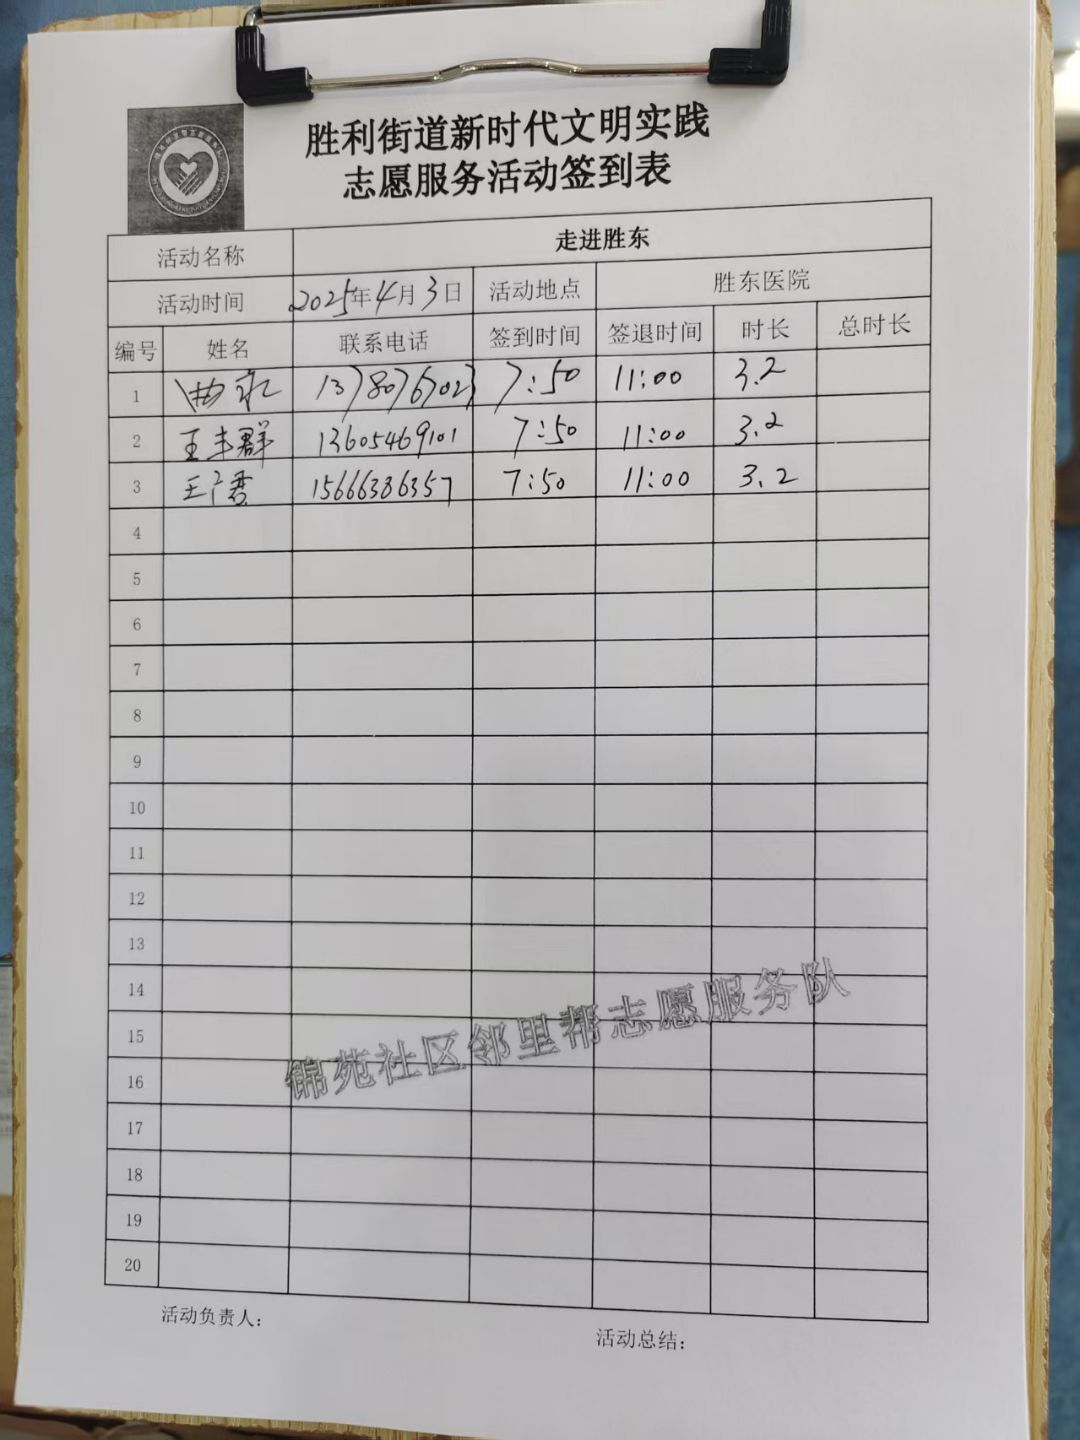 胜利街道新时代文明实践
志愿服务活动签到表
活动名称 走进胜东
活动时间 2025年4月3日 活动地点 胜东医院
编号 姓名 联系电话 签到时间 签退时间 时长 总时长
1 7:50 11:00 3.2
2 王丰群 13605469101 7:50 11:00 3.2
3 王广秀 15666386357 7:50 11:00 3.2
4
5
6
7
8
9
10
11
12
13
14
15
16
17
18
19
20
锦苑社区邻里帮志愿服务队
活动负责人：
活动总结：